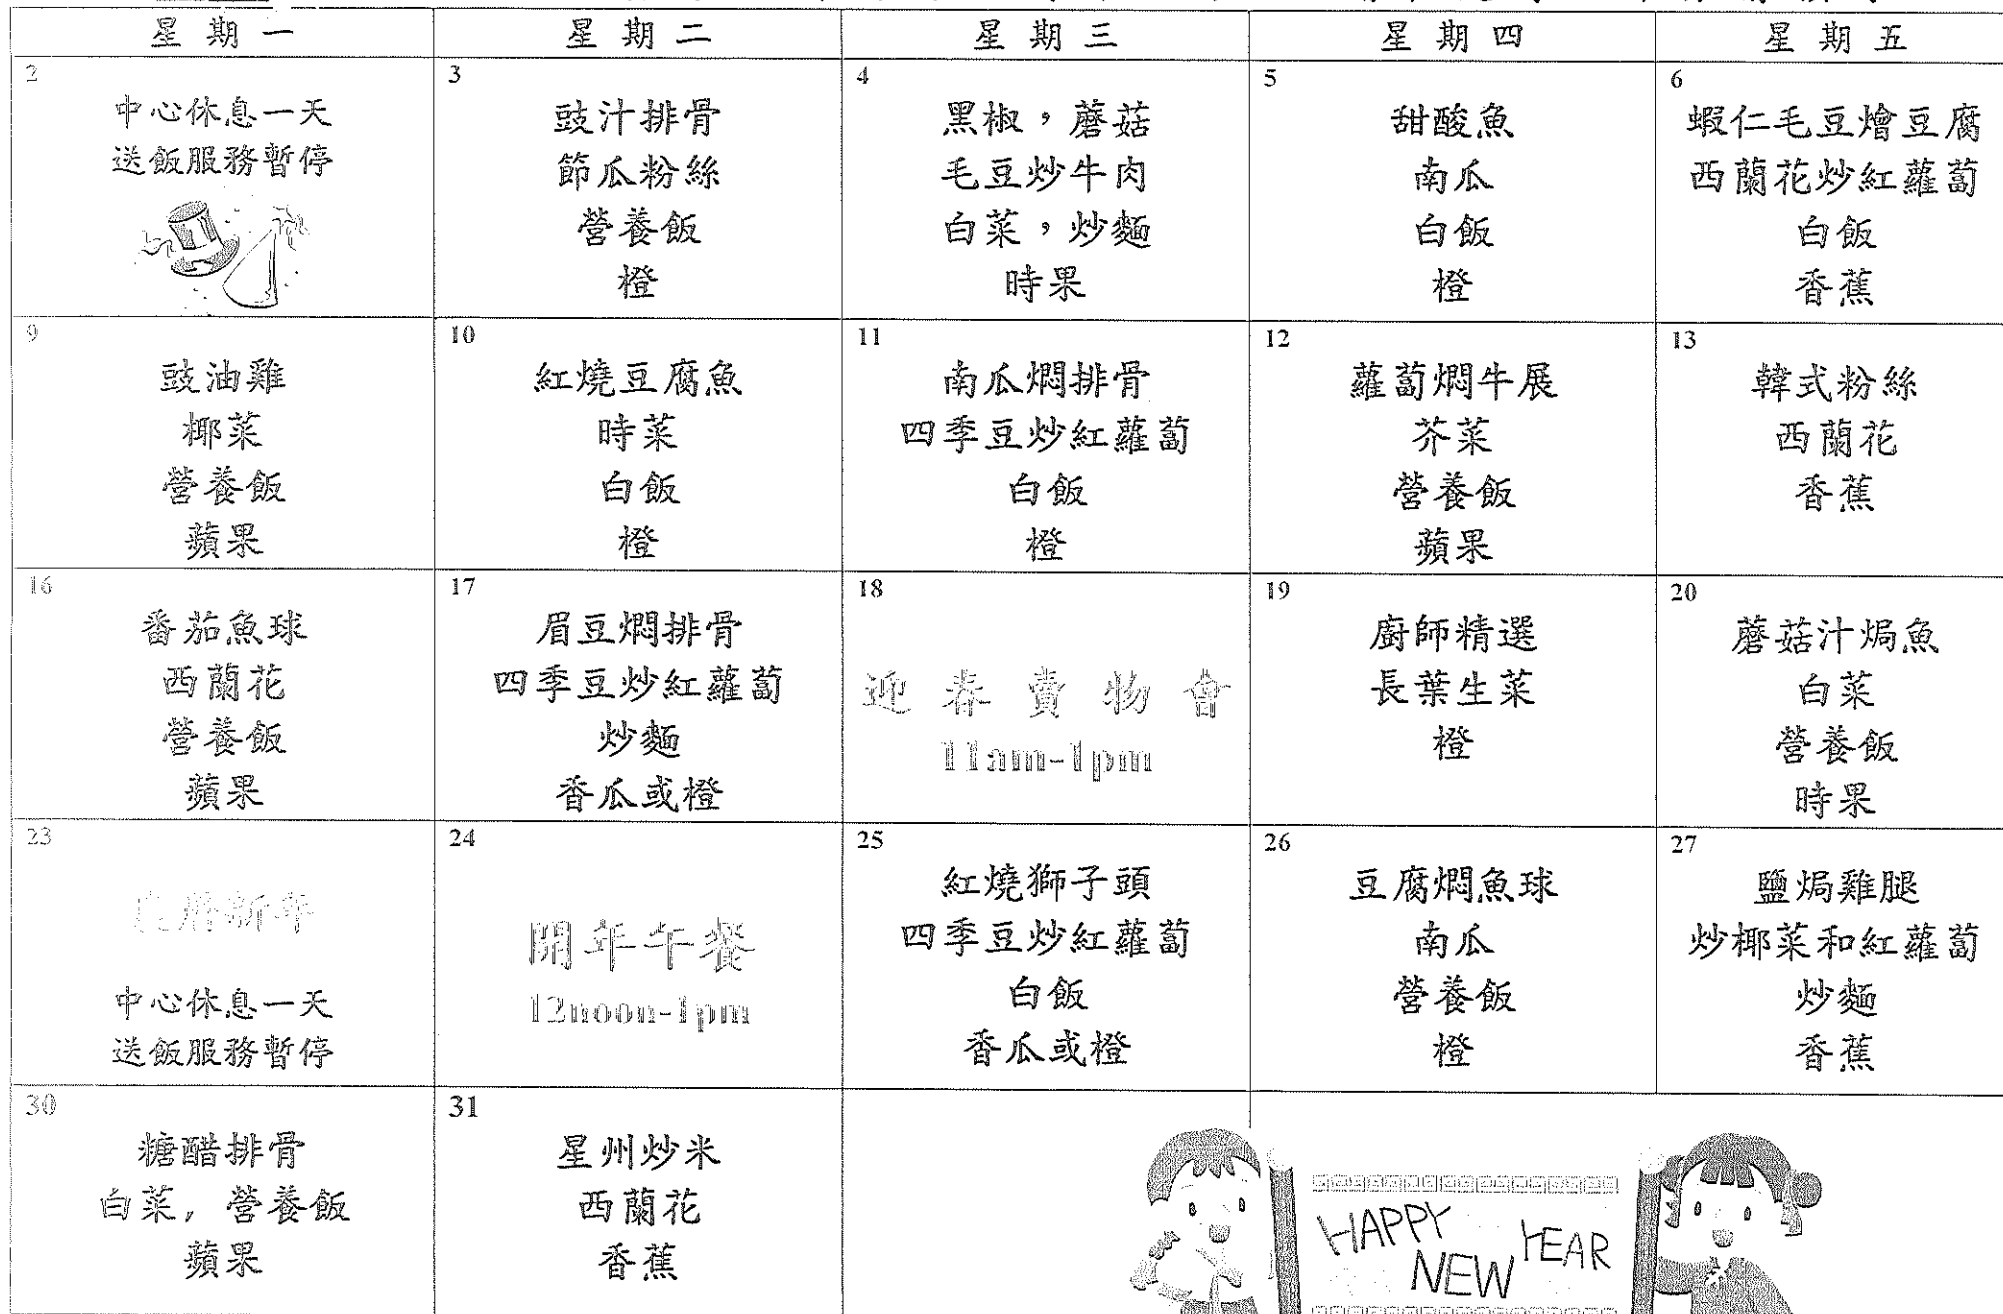 星期一
星期二
星期三
星期四
星期五
2
中心休息一天
送飯服務暫停
3
豉汁排骨
節瓜粉絲
營養飯
橙
4
黑椒，蘑菇
毛豆炒牛肉
白菜，炒麵
時果
5
甜酸魚
南瓜
白飯
橙
6
蝦仁毛豆燴豆腐
西蘭花炒紅蘿蔔
白飯
香蕉
9
豉油雞
椰菜
營養飯
蘋果
10
紅燒豆腐魚
時菜
白飯
橙
11
南瓜燜排骨
四季豆炒紅蘿蔔
白飯
橙
12
蘿蔔燜牛展
芥菜
營養飯
蘋果
13
韓式粉絲
西蘭花
香蕉
16
番茄魚球
西蘭花
營養飯
蘋果
17
眉豆燜排骨
四季豆炒紅蘿蔔
炒麵
香瓜或橙
18
迎春賣物會
11am-1pm
19
廚師精選
長葉生菜
橙
20
蘑菇汁焗魚
白菜
營養飯
時果
23
農曆新年
中心休息一天
送飯服務暫停
24
開年午餐
12noon-1pm
25
紅燒獅子頭
四季豆炒紅蘿蔔
白飯
香瓜或橙
26
豆腐燜魚球
南瓜
營養飯
橙
27
鹽焗雞腿
炒椰菜和紅蘿蔔
炒麵
香蕉
30
糖醋排骨
白菜, 營養飯
蘋果
31
星州炒米
西蘭花
香蕉
HAPPY
NEW YEAR